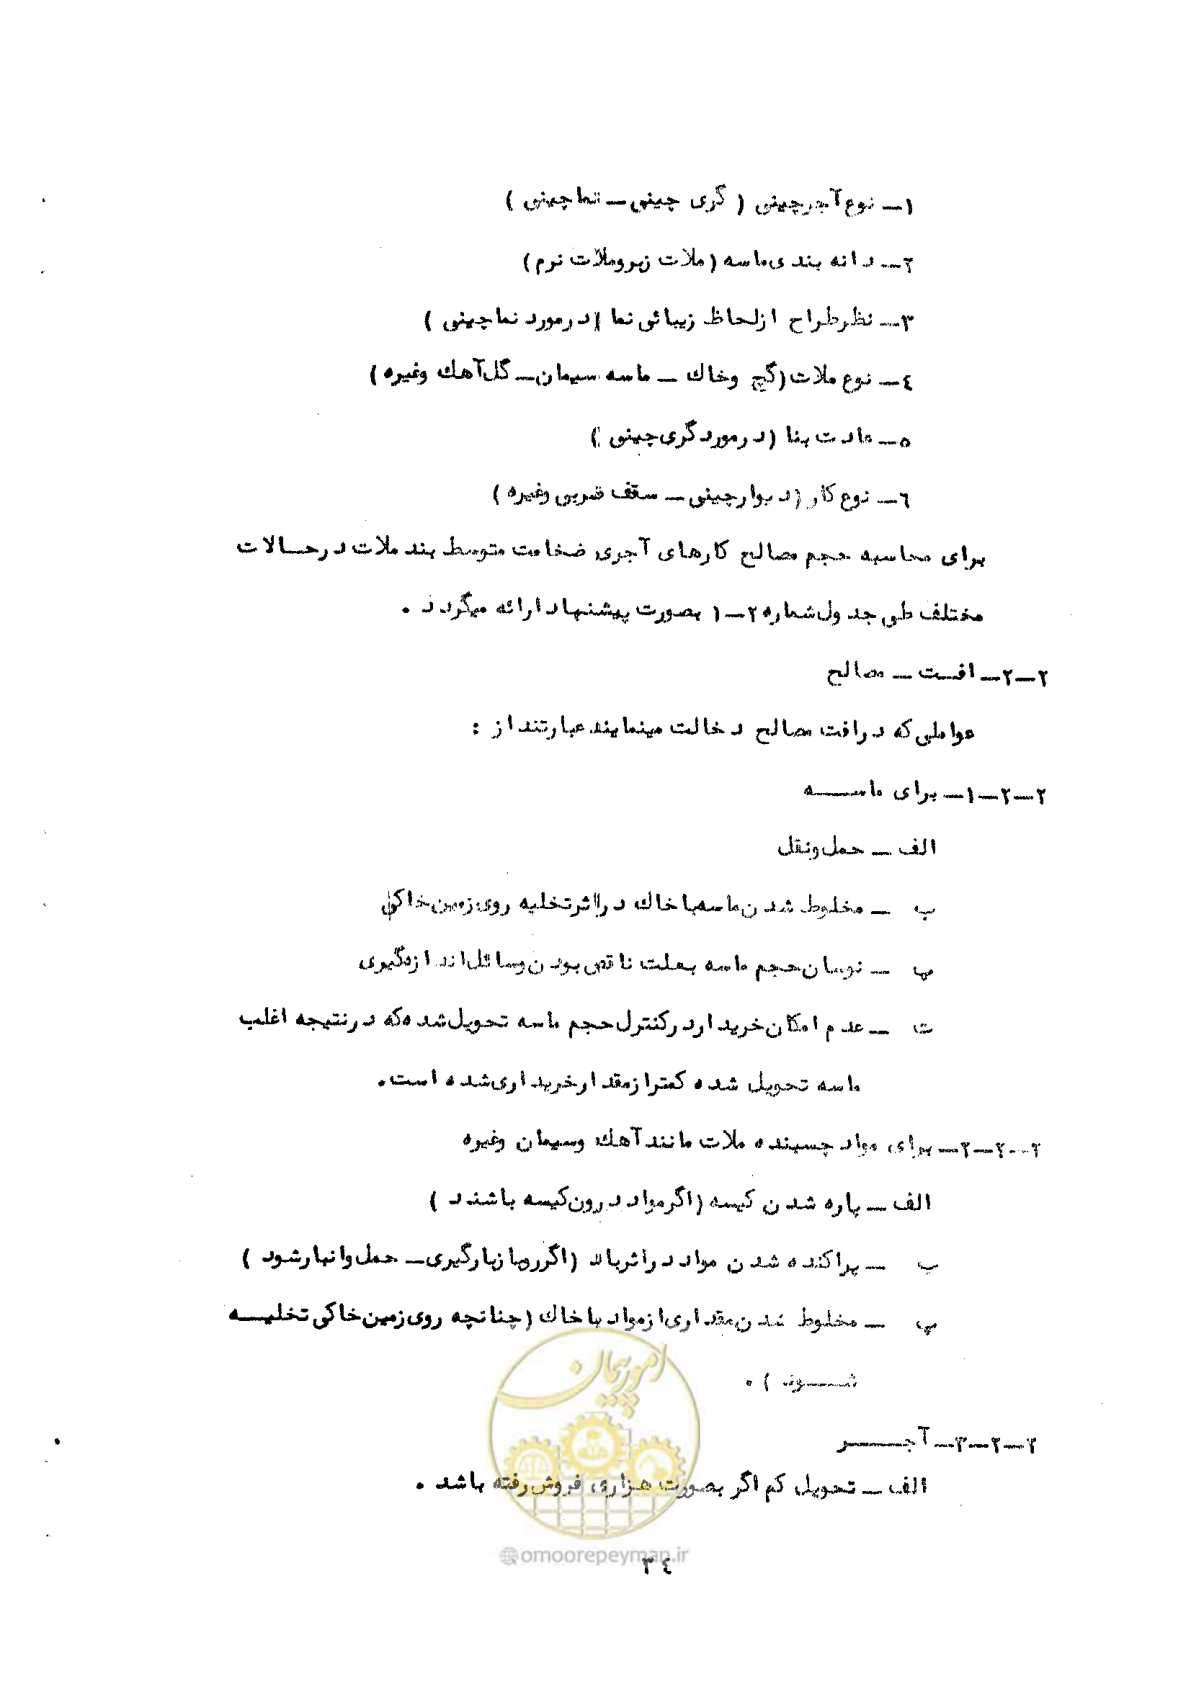 ۱ــ نوع آجرچینی ( گری چینی ــ نماچینی )
۲ــ دانه بندی ماسه ( ملات زبر و ملات نرم )
۳ــ نظر طراح از لحاظ زیبائی نما ( در مورد نماچینی )
٤ــ نوع ملات ( گچ و خاك ــ ماسه سیمان ــ گل آهك وغیره )
٥ــ عادت بنا ( در مورد گری چینی )
٦ــ نوع کار ( دیوارچینی ــ سقف ضربی وغیره )
برای محاسبه حجم مصالح کارهای آجری ضخامت متوسط بند ملات در حالات
مختلف طی جدول شماره ۲ــ۱ بصورت پیشنهاد ارائه میگردد .
۲ــ۲ــ افت ــ مصالح
عواملی که در افت مصالح دخالت مینمایند عبارتند از :
۲ــ۲ــ۱ــ برای ماسه
الف ــ حمل ونقل
ب ــ مخلوط شدن ماسه با خاك در اثر تخلیه روی زمین خاکی
پ ــ نوسان حجم ماسه بعلت ناقص بودن وسائل اندازه گیری
ت ــ عدم امکان خریدار در کنترل حجم ماسه تحویل شده که در نتیجه اغلب
ماسه تحویل شده کمتر از مقدار خریداری شده است.
۲ــ۲ــ۲ــ برای مواد چسبنده ملات مانند آهك وسیمان وغیره
الف ــ پاره شدن کیسه ( اگر مواد درون کیسه باشند )
ب ــ پراکنده شدن مواد در اثر باد ( اگر روباز بارگیری ــ حمل وانبار شود )
پ ــ مخلوط شدن مقداری از مواد با خاك ( چنانچه روی زمین خاکی تخلیه
شوند ) .
۲ــ۲ــ۳ــ آجر
الف ــ تحویل کم اگر بصورت هزاری فروش رفته باشد .
امور پیمان
@omoorepeyman.ir
۳٤